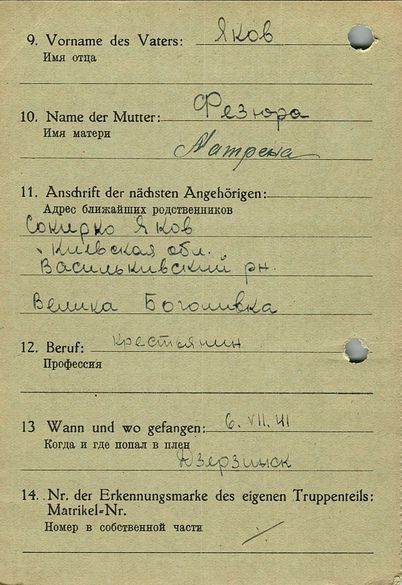 9. Vorname des Vaters: Яков
Имя отца
10. Name der Mutter: Фезюра
Имя матери
Матрена
11. Anschrift der nächsten Angehörigen:
Адрес ближайших родственников
Сокирко Яков
Киевская обл.
Василькивский рн.
Велика Боголивка
12. Beruf: крестьянин
Профессия
13 Wann und wo gefangen: 6. VII. 41
Когда и где попал в плен
Дзерзинск
14. Nr. der Erkennungsmarke des eigenen Truppenteils:
Matrikel-Nr.
Номер в собственной части